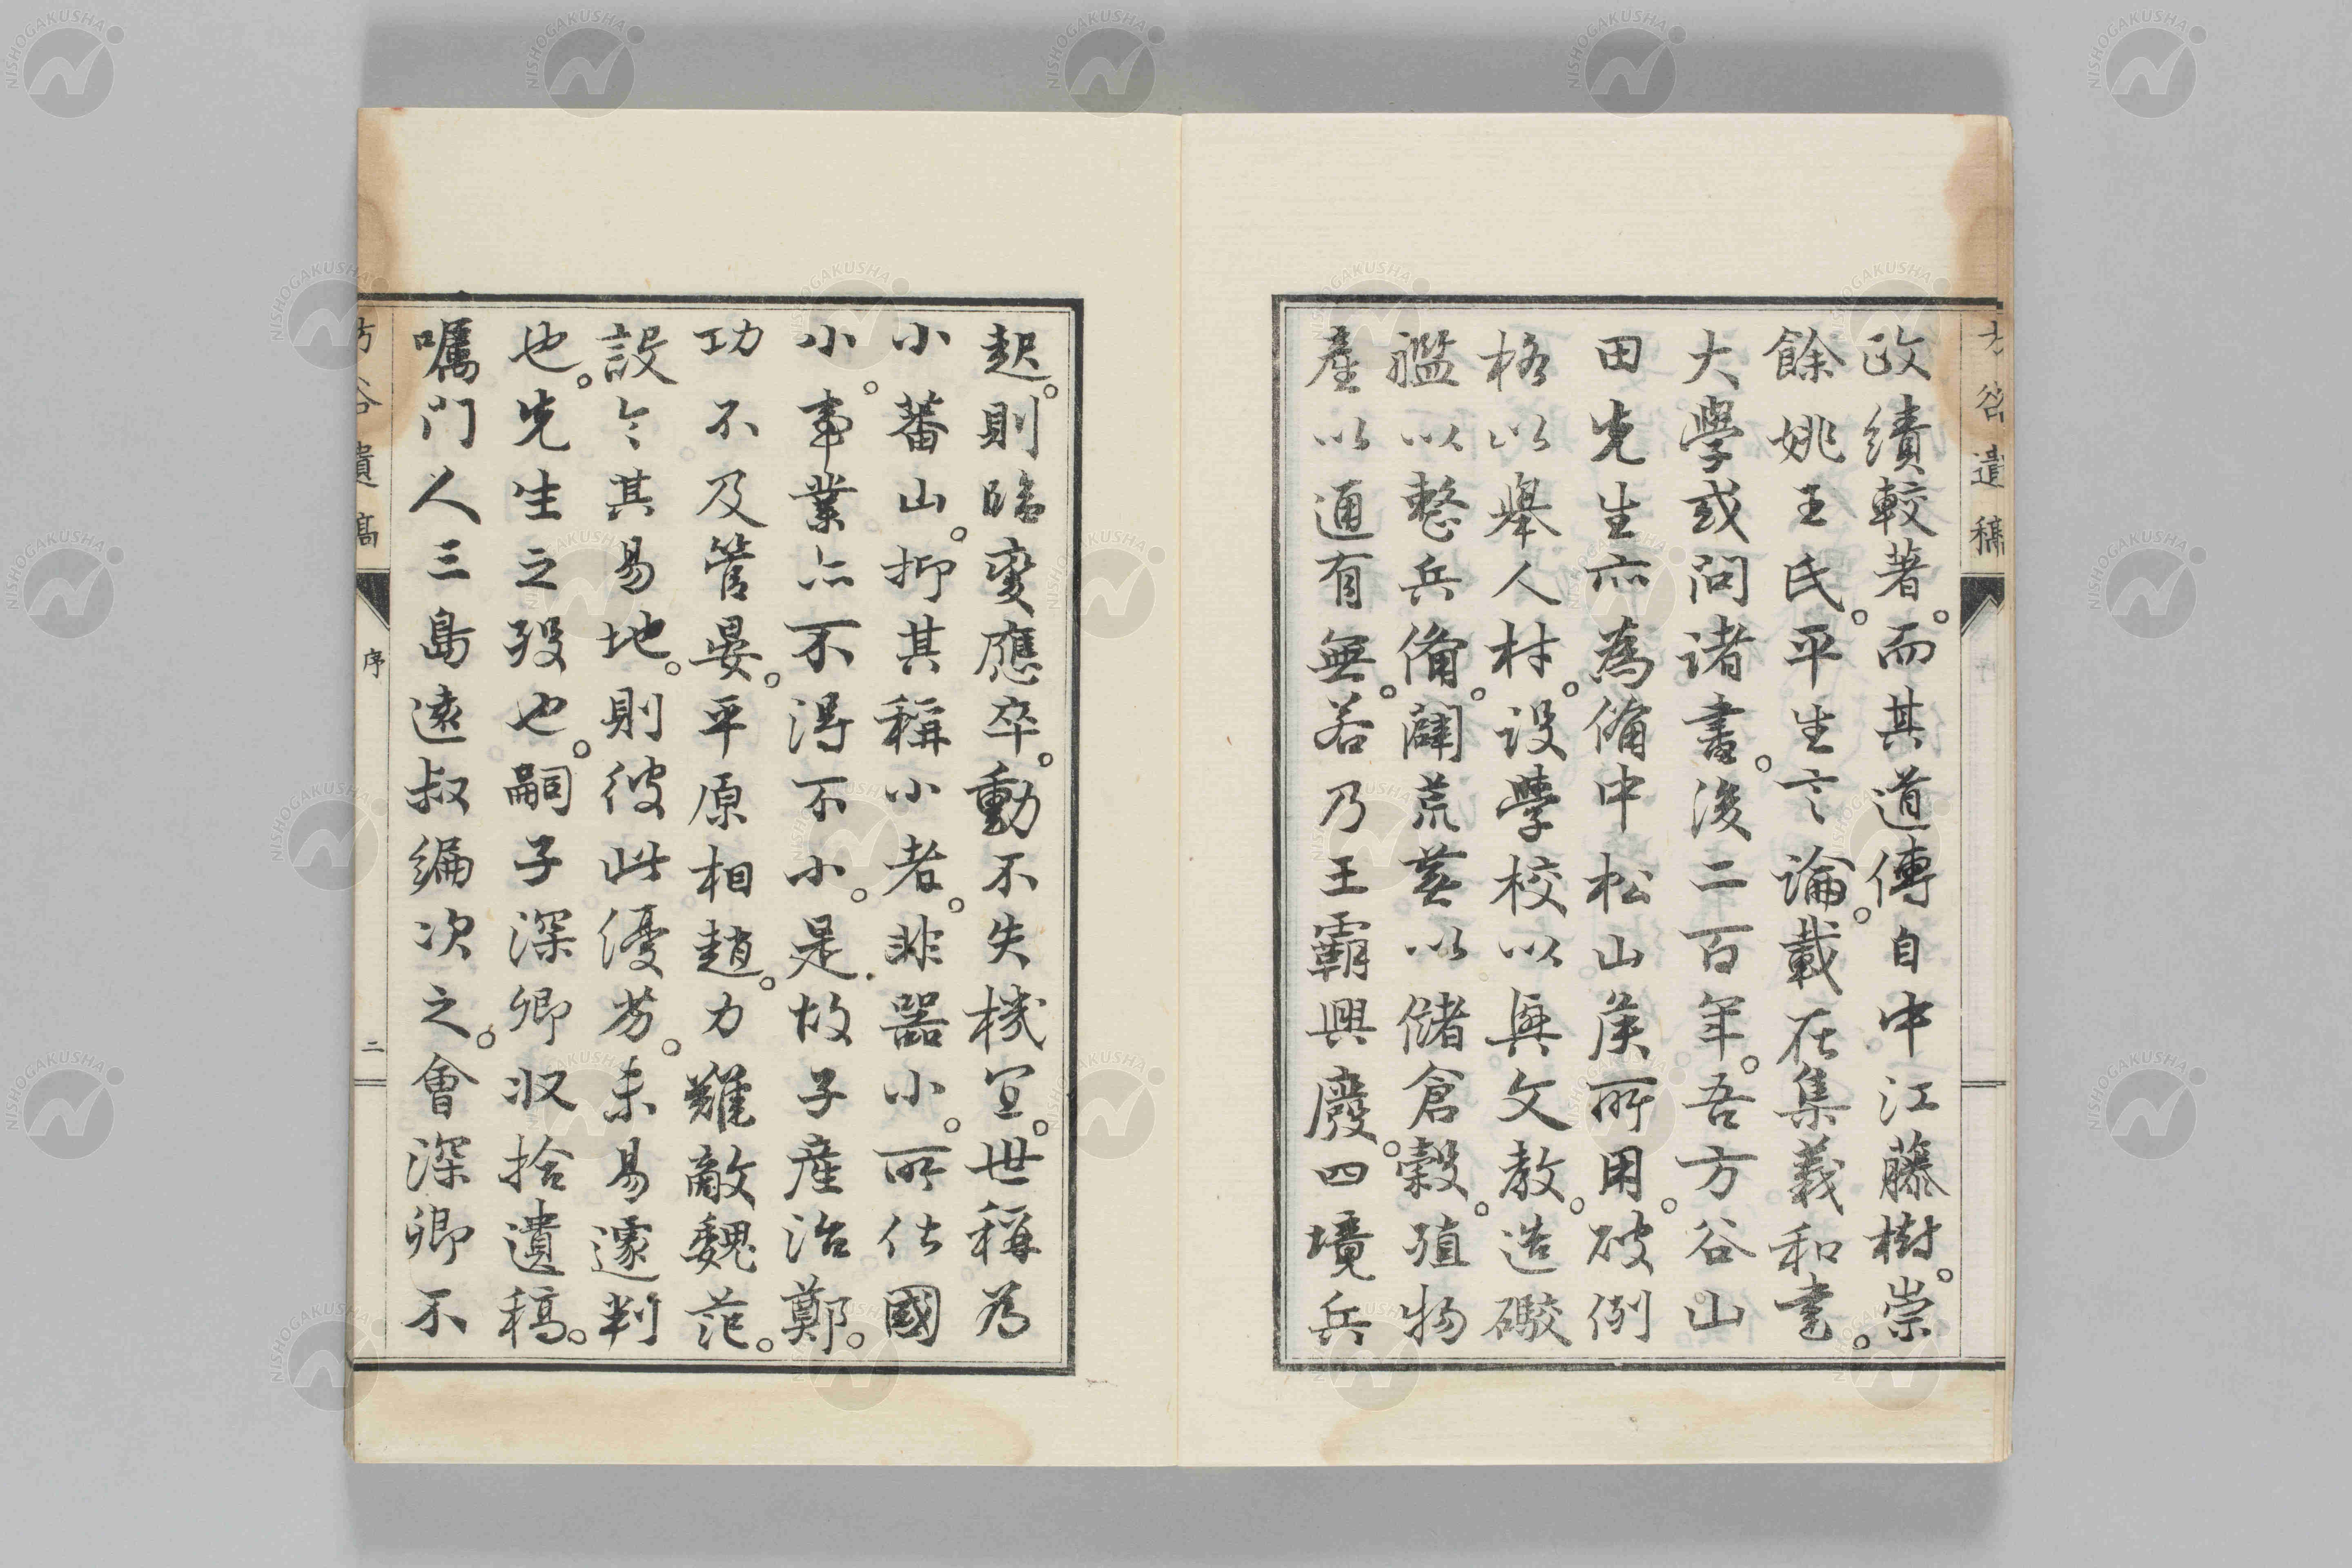 政績較著。而其道傳自中江藤樹。崇
餘姚王氏。平生言論。載在集義和書。
大學或問諸書。後二百年。吾方谷山
田先生亦為備中松山侯所用。破例
格以舉人材。設學校以興文教。造礟
艦以整兵備。闢荒蕪以儲倉穀。殖物
產以通有無。若乃王霸興廢。四境兵
起。則臨變應卒。動不失機宜。世稱為
小蕃山。抑其稱小者。非器小。所仕國
小。事業亦不得不小。是故子產治鄭。
功不及管晏。平原相趙。力難敵魏范。
設令其易地。則彼此優劣。未易遽判
也。先生之歿也。嗣子深卿收拾遺稿。
囑門人三島遠叔編次之。會深卿不
方谷遺稿
序
二
NISHOGAKUSHA